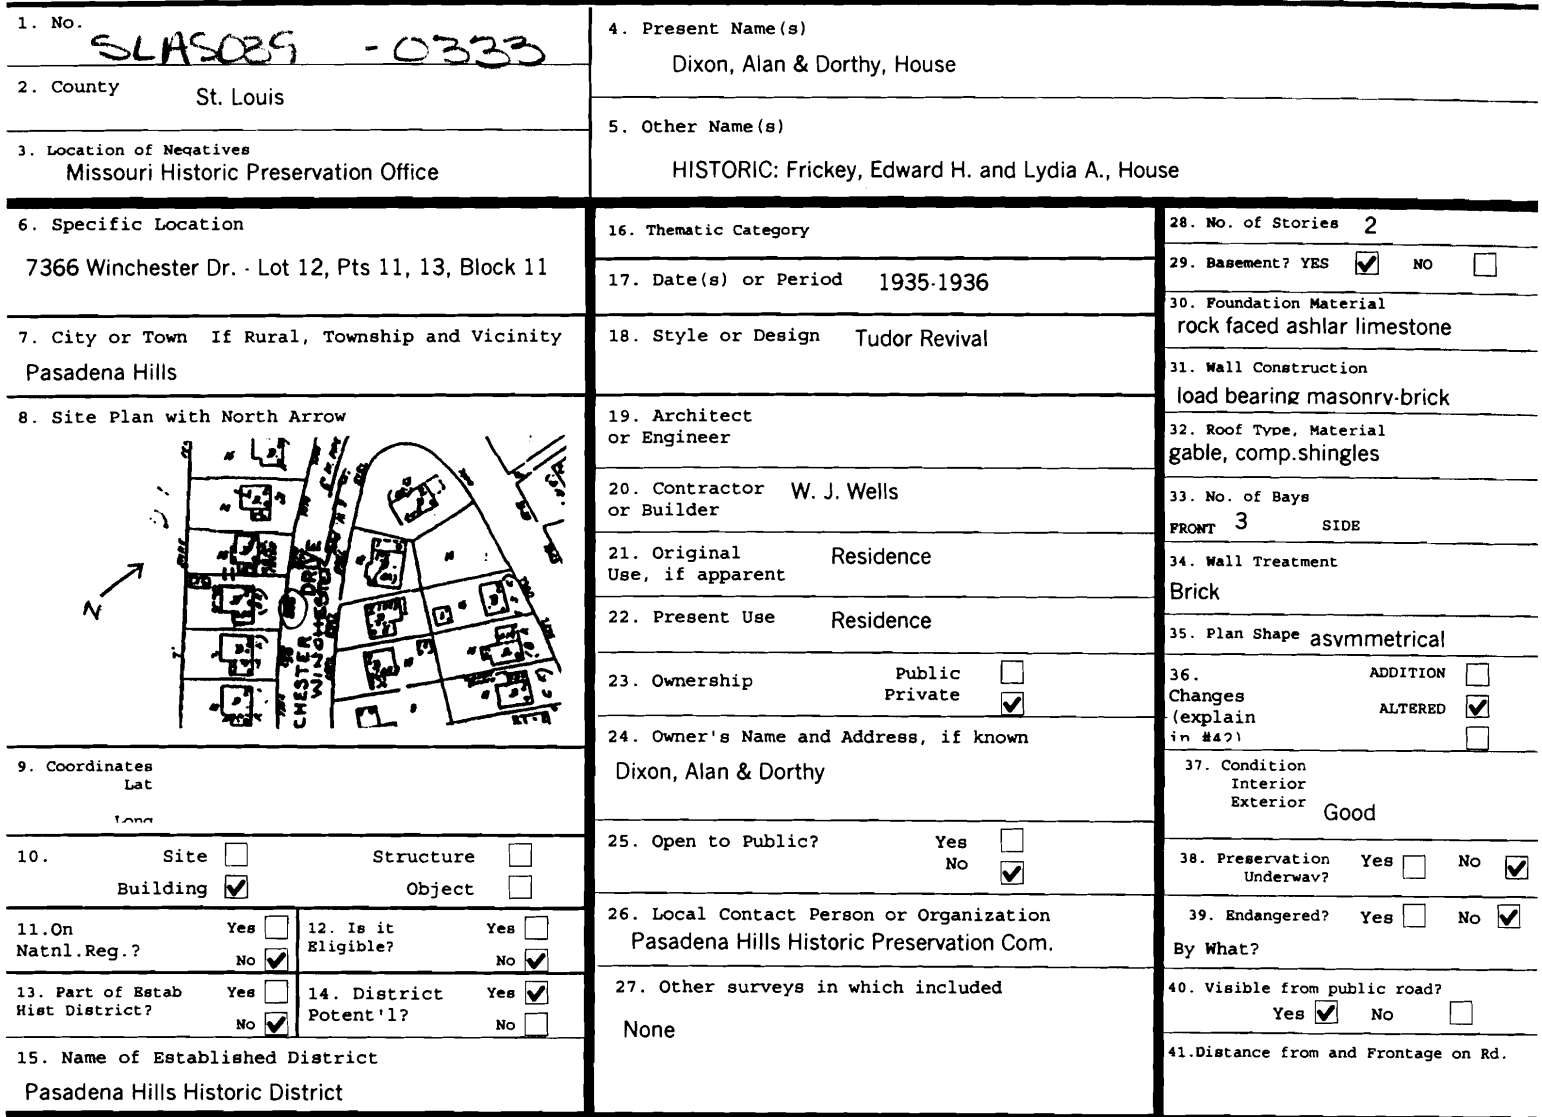 1. No.
SLAS039 -0333
2. County
St. Louis
3. Location of Negatives
Missouri Historic Preservation Office
4. Present Name(s)
Dixon, Alan & Dorthy, House
5. Other Name(s)
HISTORIC: Frickey, Edward H. and Lydia A., House
6. Specific Location
7366 Winchester Dr. - Lot 12, Pts 11, 13, Block 11
7. City or Town If Rural, Township and Vicinity
Pasadena Hills
8. Site Plan with North Arrow
N
CHESTER DRIVE
WINCHESTER
9. Coordinates
Lat
Long
10. Site Structure
Building Object
11.On Yes
Natnl.Reg.? No
12. Is it Yes
Eligible? No
13. Part of Estab Yes
Hist District? No
14. District Yes
Potent'l? No
15. Name of Established District
Pasadena Hills Historic District
16. Thematic Category
17. Date(s) or Period 1935-1936
18. Style or Design Tudor Revival
19. Architect
or Engineer
20. Contractor W. J. Wells
or Builder
21. Original Residence
Use, if apparent
22. Present Use Residence
23. Ownership Public
Private
24. Owner's Name and Address, if known
Dixon, Alan & Dorthy
25. Open to Public? Yes
No
26. Local Contact Person or Organization
Pasadena Hills Historic Preservation Com.
27. Other surveys in which included
None
28. No. of Stories 2
29. Basement? YES NO
30. Foundation Material
rock faced ashlar limestone
31. Wall Construction
load bearing masonry-brick
32. Roof Type, Material
gable, comp.shingles
33. No. of Bays
FRONT 3 SIDE
34. Wall Treatment
Brick
35. Plan Shape asymmetrical
36. ADDITION
Changes
(explain ALTERED
in #42)
37. Condition
Interior
Exterior Good
38. Preservation Yes No
Underway?
39. Endangered? Yes No
By What?
40. Visible from public road?
Yes No
41.Distance from and Frontage on Rd.